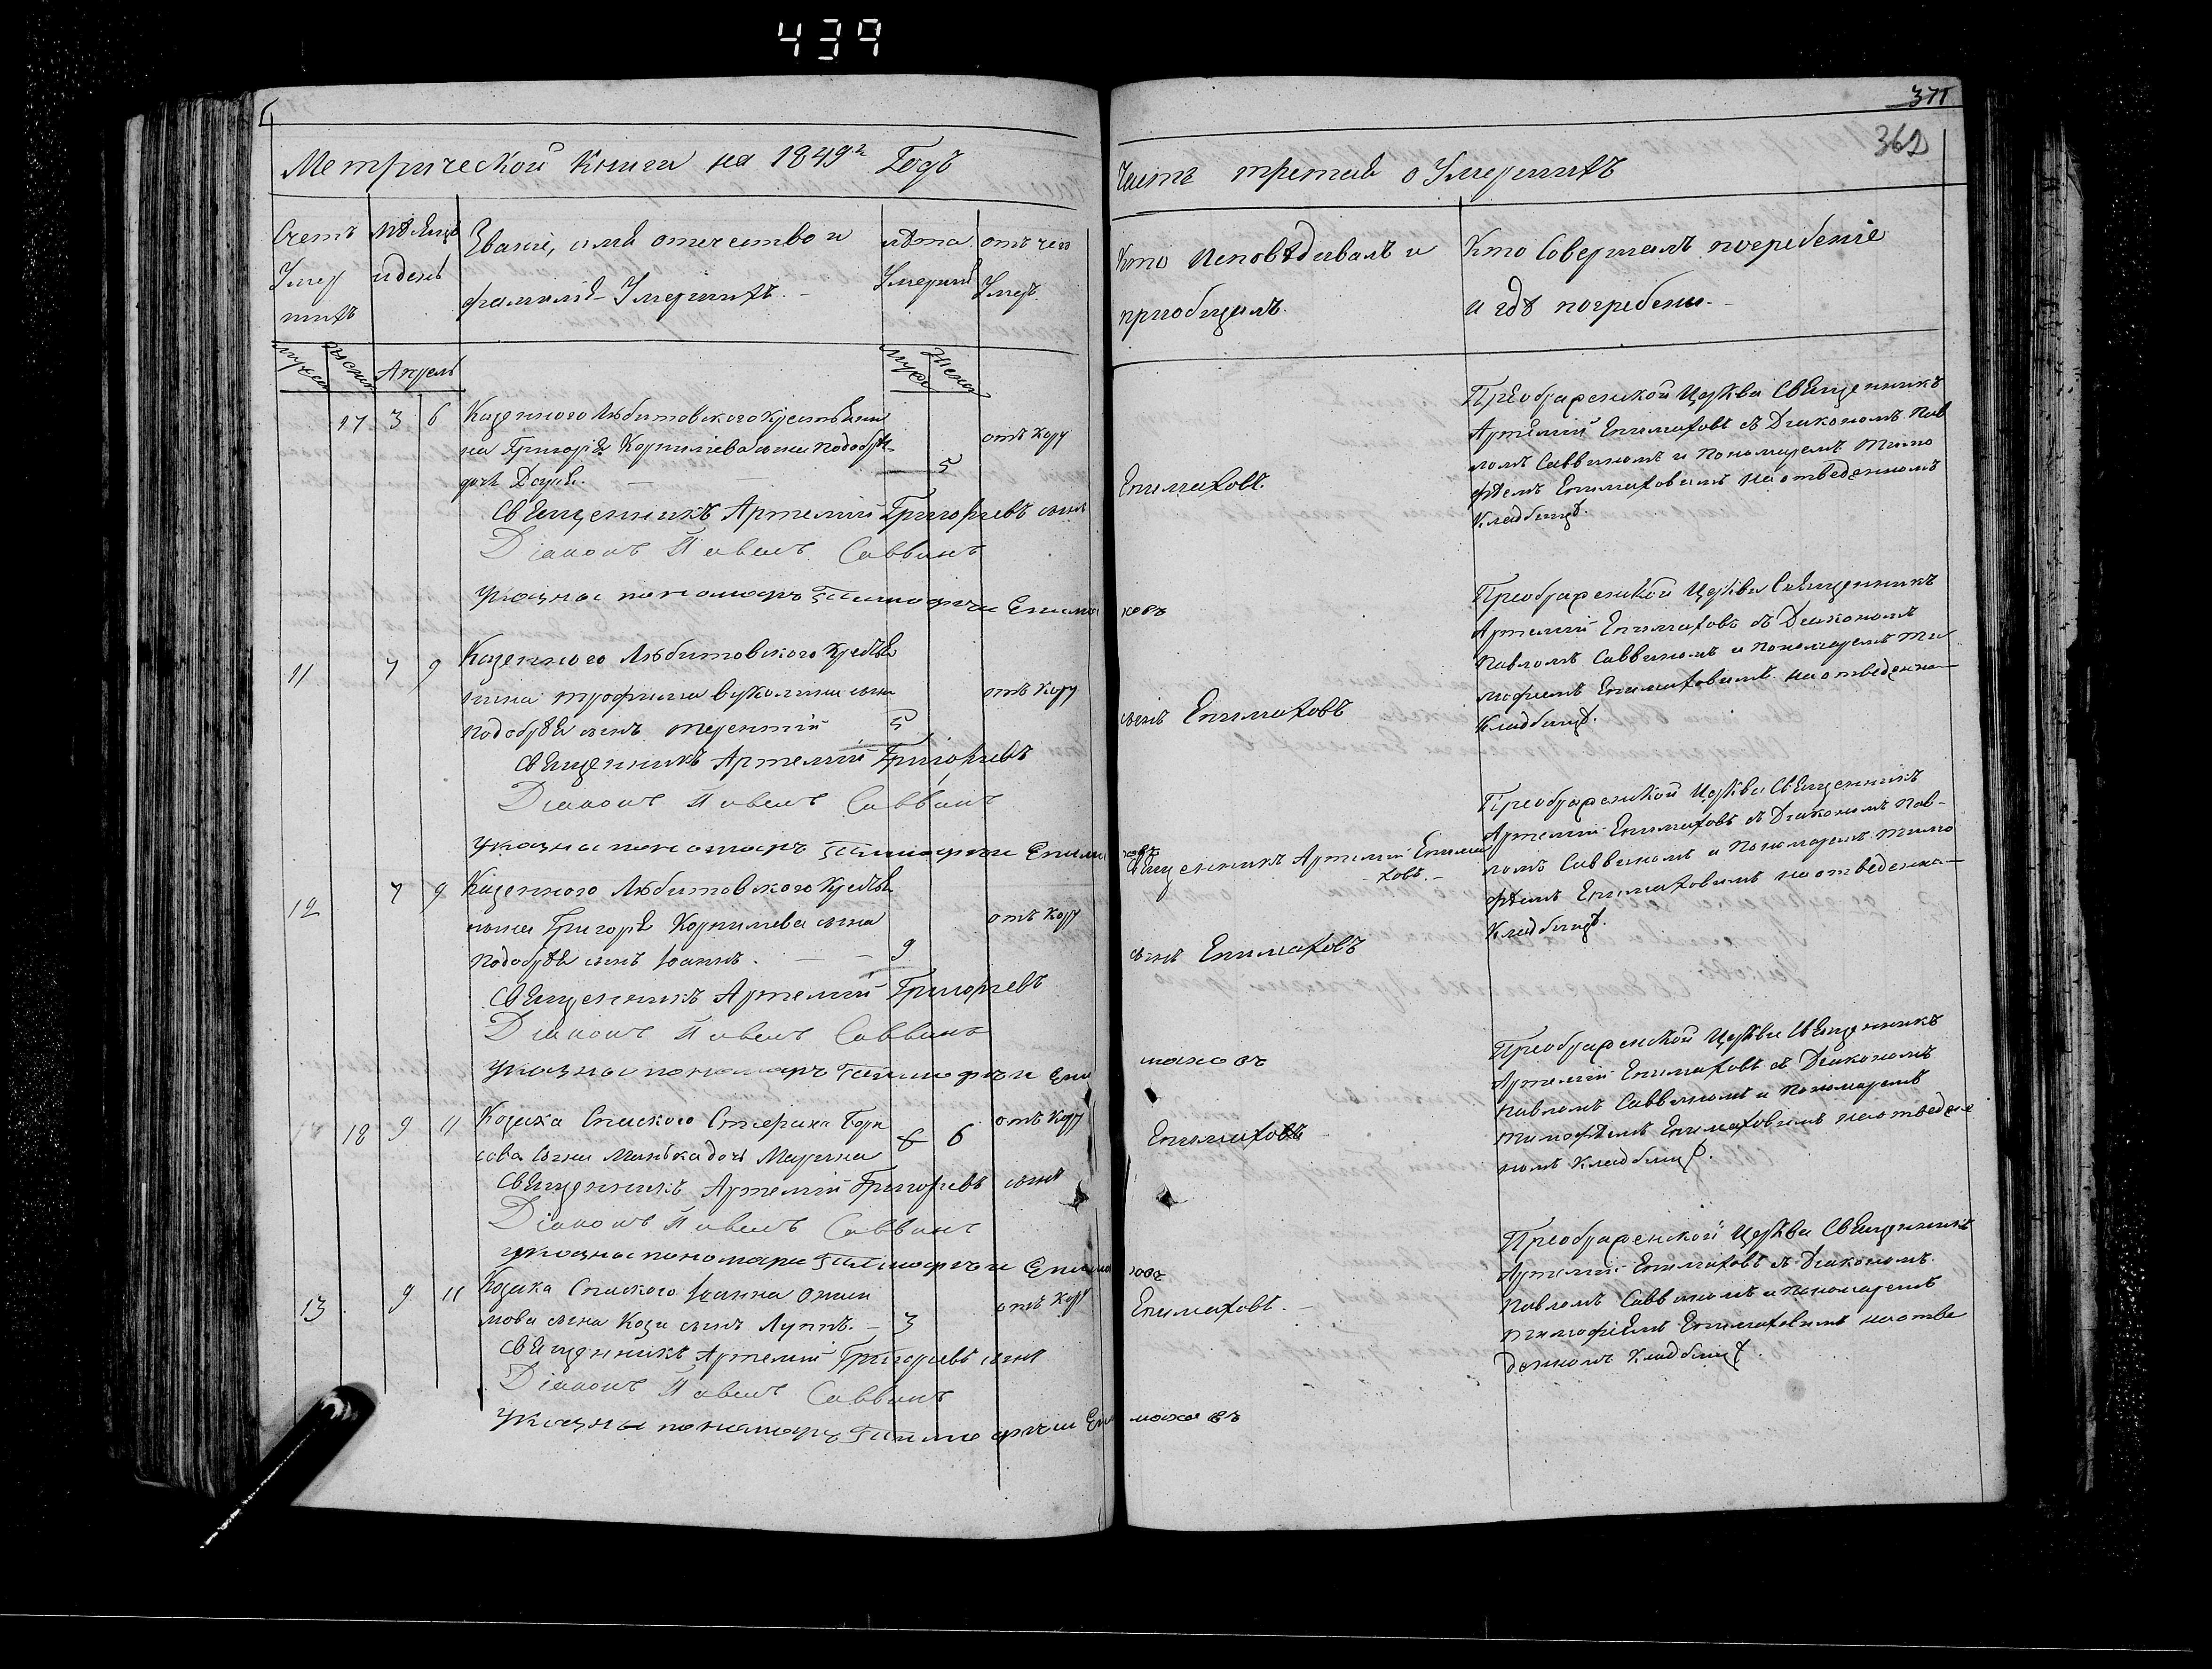 439
371
362
Метрической книги на 1849й Годъ
Часть третья о Умершихъ
Счетъ Умер шихъ
Мѣсяцъ и день
Званіе, имя отечество и
фамилія Умершихъ.
лѣта Умерших
отъ чего Умеръ
Кто исповѣдывалъ и
пріобщилъ
Кто Совершалъ погребеніе
и гдѣ погребены.
Мужеска Женска
Апрель
Муже Женск
17 3 6 Казенного Любитовского крестьяни
на Григорія Корнилиева сына Подобѣд
дочь 5 отъ кору
Священникъ Артемій Григорьевъ сынъ Епимаховъ
Діаконъ Павелъ Саввинъ
Указный пономарь Тимофѣи Епима ховъ
Преображенской Церкви Священникъ
Артемій Епимаховъ съ Діакономъ Пав
ломъ Саввиномъ и Пономаремъ Тимо
фѣемъ Епимаховымъ на отведенномъ
Кладбищѣ.
11 7 9 Казенного Любитовского крестья
нина Трофима Вуколина сына
сынъ Терентій 5 отъ кору
Священникъ Артемій Григорьевъ сынъ Епимаховъ
Діаконъ Павелъ Саввинъ
Указный пономарь Тимофѣи Епима ховъ
Преображенской Церкви Священникъ
Артемій Епимаховъ съ Діакономъ
Павломъ Саввиномъ и пономаремъ Ти
мофеемъ Епимаховымъ на отведенно
Кладбищѣ.
12 7 9 Казенного Любитовского крестья
нина Григорія Корнилиева сына
сынъ Іоаннъ. 9 отъ кору
Священникъ Артемій Епима
ховъ.
Священникъ Артемій Григорьевъ сынъ Епимаховъ
Діаконъ Павелъ Саввинъ
Указный пономарь Тимофѣи Епи маховъ
Преображенской Церкви Священникъ
Артемій Епимаховъ съ Діакономъ Пав-
ломъ Саввиномъ и Пономаремъ Тимо
фѣемъ Епимаховымъ на отведенно
Кладбищѣ.
18 9 11 Козака Спаского Стефана Бори
сова сына Манька дочь Марина 6 отъ кору
Священникъ Артемій Григорьевъ сынъ Епимаховъ
Діаконъ Павелъ Саввинъ
указный пономарь Тимофѣи Епима ховъ
Преображенской Церкви Священникъ
Артемій Епимаховъ съ Діакономъ
Павломъ Саввиномъ и Пономаремъ
Тимофѣемъ Епимаховымъ на отведен
номъ Кладбищѣ.
13 9 11 Козака Спаского Іоанна
сына Коза сынъ Луппъ. 3 отъ кору
Священникъ Артемій Григорьевъ сынъ Епимаховъ.
Діаконъ Павелъ Саввинъ
Указный пономарь Тимофѣи Епи маховъ
Преображенской Церкви Священникъ
Артемій Епимаховъ съ Діакономъ
Павломъ Саввиномъ и Пономаремъ
Тимофѣемъ Епимаховымъ на отве
денномъ Кладбищѣ.